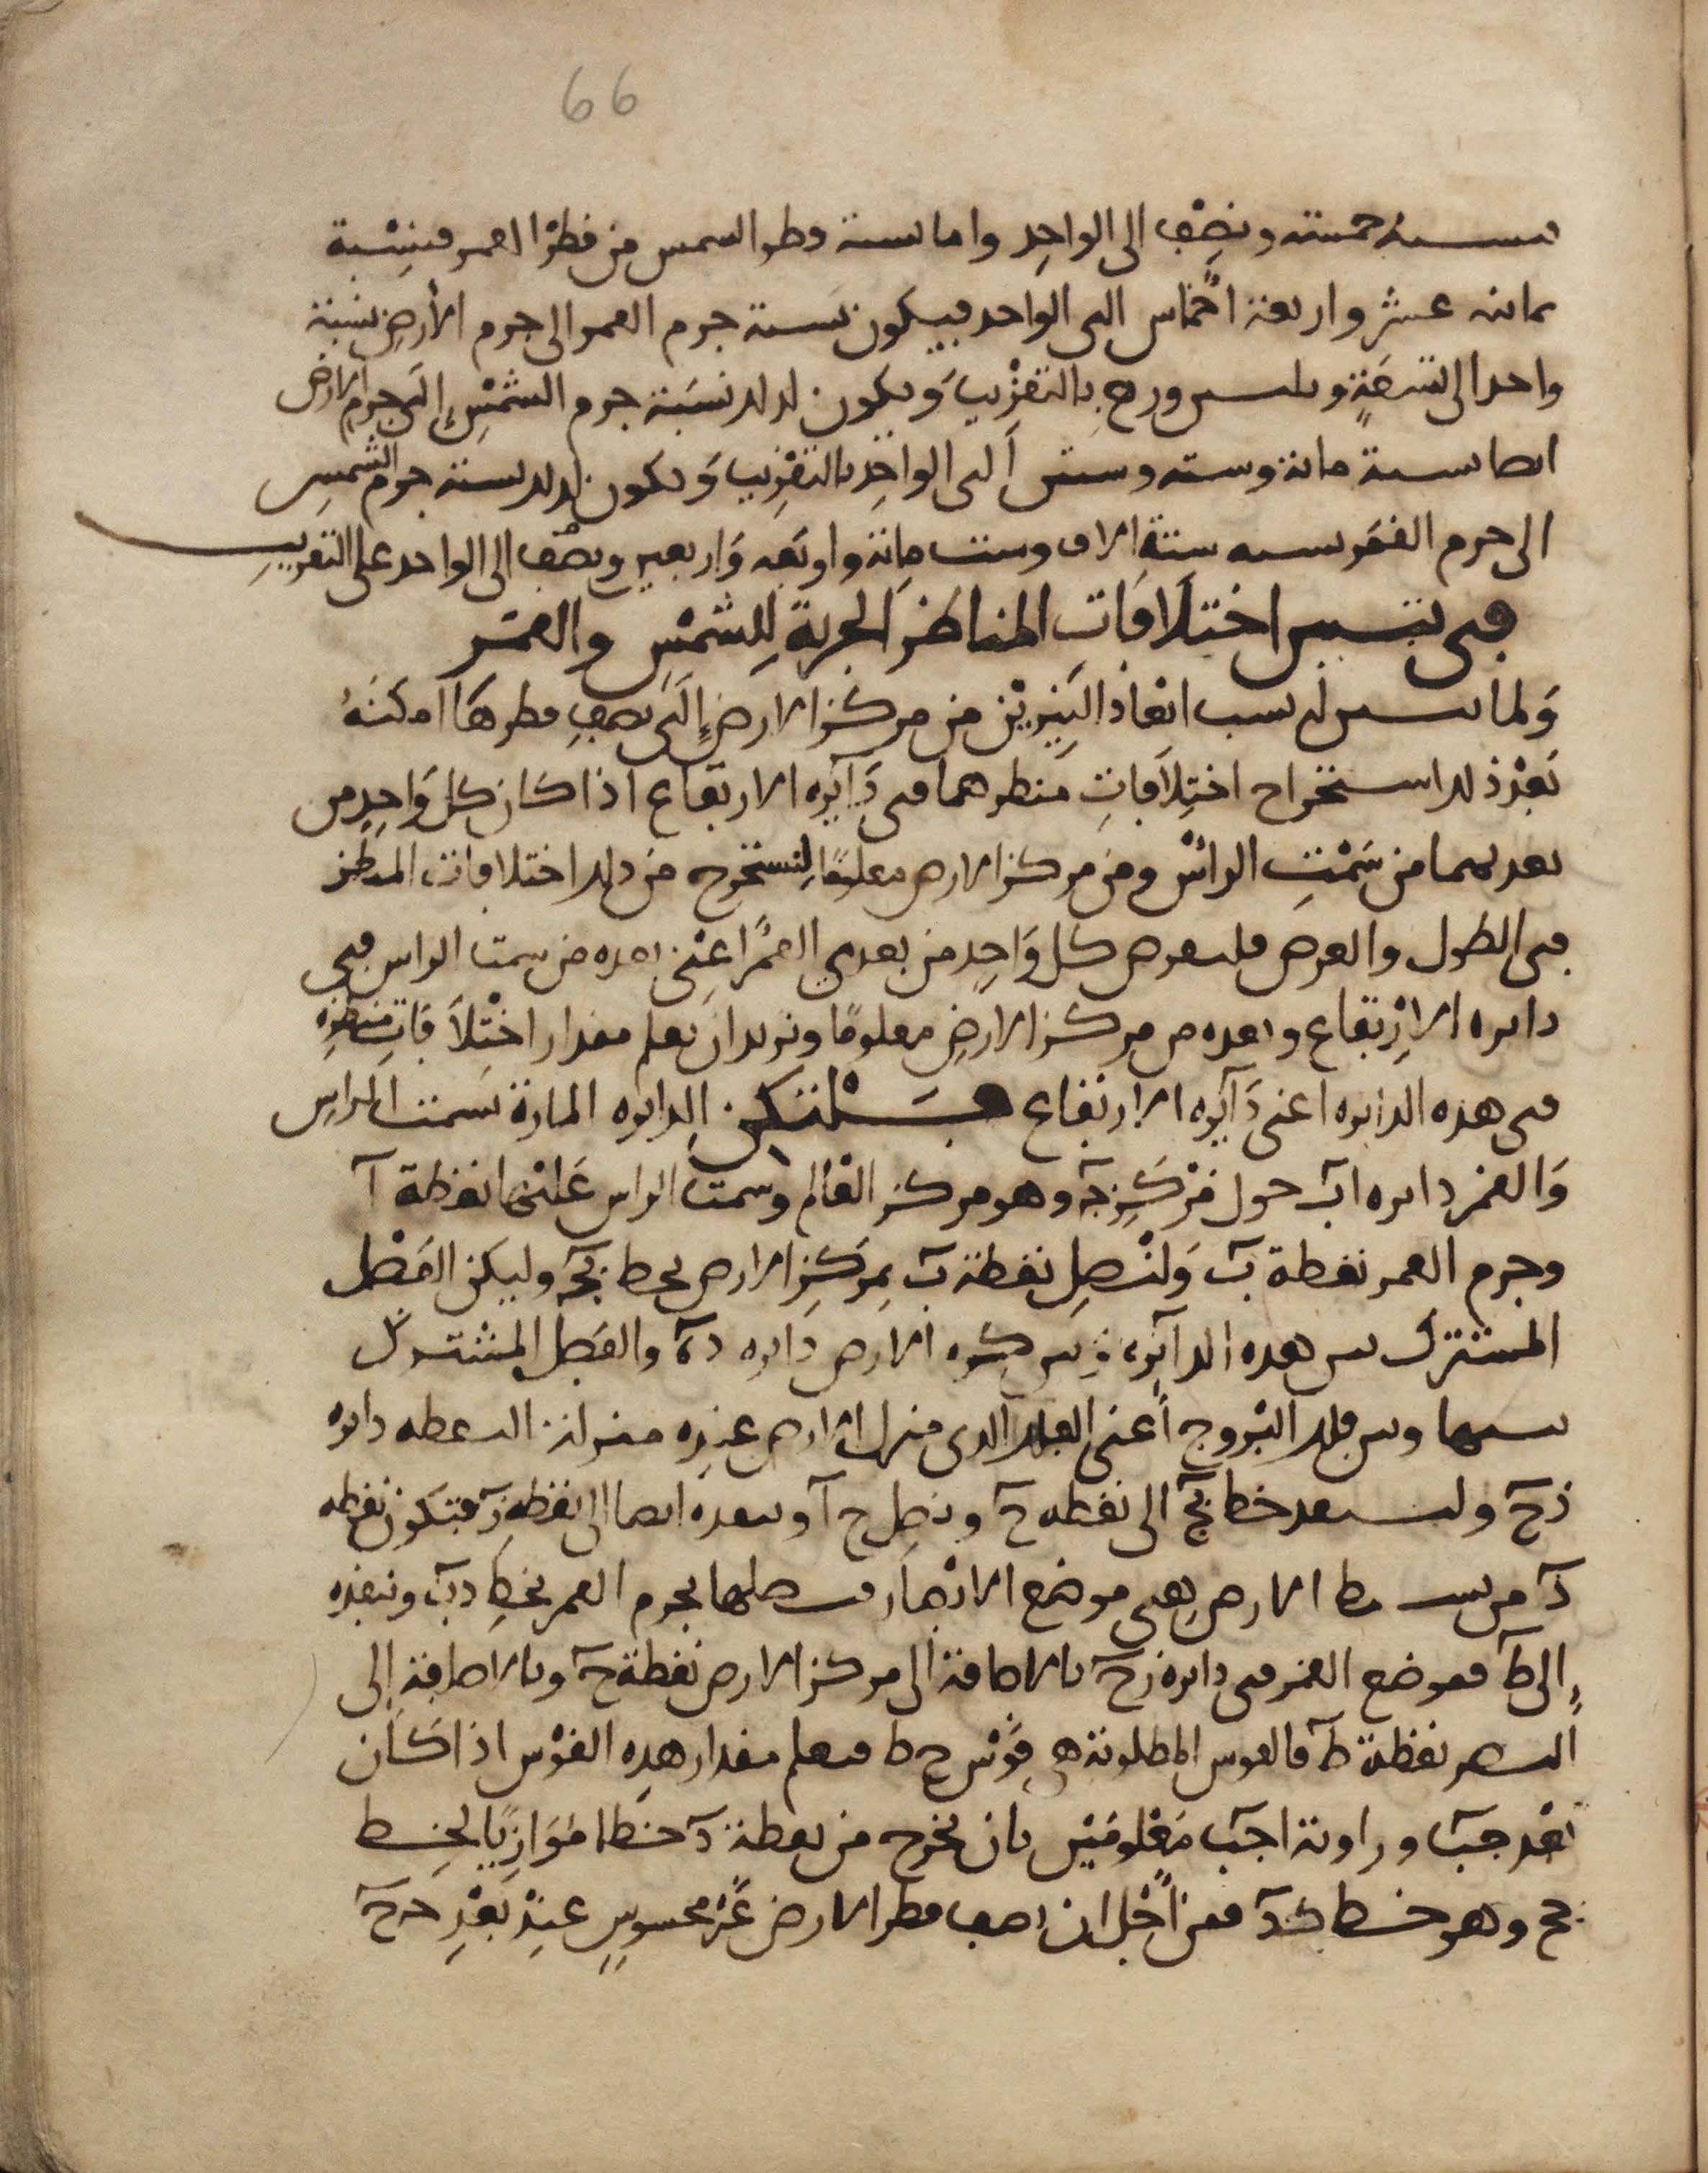 66
نسبة خمسة ونصف الى الواحد واما نسبة قطر الشمس من قطر القمر فنسبة
ثمانية عشر واربعة اخماس الى الواحد فيكون نسبة جرم القمر الى جرم الارض نسبة
واحد الى تسعة وثلثين وربع بالتقريب ويكون لذلك نسبة جرم الشمس الى جرم الارض
ايضا نسبة مائة وستة وستين الى الواحد بالتقريب ويكون لذلك نسبة جرم الشمس
الى جرم القمر نسبة ستة الاف وست مائة واربعة واربعين ونصف الى الواحد على التقريب
في تبيين اختلافات المناظر الجزئية للشمس والقمر
ولما تبين له نسب ابعاد النيرين من مركز الارض الى نصف قطرها امكنه
بعد ذلك استخراج اختلافات منظرهما في دائرة الارتفاع اذا كان كل واحد من
بعديهما من سمت الراس ومن مركز الارض معلوما لنستخرج من ذلك اختلافات المنظر
في الطول والعرض فلنفرض كل واحد من بعدي القمر اعني بعده من سمت الراس في
دائرة الارتفاع وبعده من مركز الارض معلوما ونريد ان نعلم مقدار اختلافات منظره
في هذه الدائرة اعني دائرة الارتفاع فلتكن الدائرة المارة بسمت الراس
والقمر دائرة اب حول مركز جـ وهو مركز العالم وسمت الراس عليها نقطة ا
وجرم القمر نقطة ب ولنصل نقطة ب بمركز الارض بخط بج وليكن الفصل
المشترك بين هذه الدائرة وبين كرة الارض دائرة ده والفصل المشترك
بينها وبين فلك البروج اعني الفلك الذي منزلة الارض عنده منزلة النقطة دائرة
زح ولينفذ خط بج الى نقطة ح ونصل ج ا وننفذه ايضا الى نقطة ز فتكون نقطة
د من بسيط الارض هي موضع الابصار فنصلها بجرم القمر بخط دب وننفذه
الى ط فموضع القمر في دائرة زح بالاضافة الى مركز الارض نقطة ح وبالاضافة الى
البصر نقطة ط فالقوس المطلوبة هي قوس ح ط فنعلم مقدار هذه القوس اذا كان
بعد جب وزاوية اجب معلومين بان نخرج من نقطة د خطا موازيا لخط
جح وهو خط كد فمن اجل ان نصف قطر الارض غير محسوس عند بعد جح